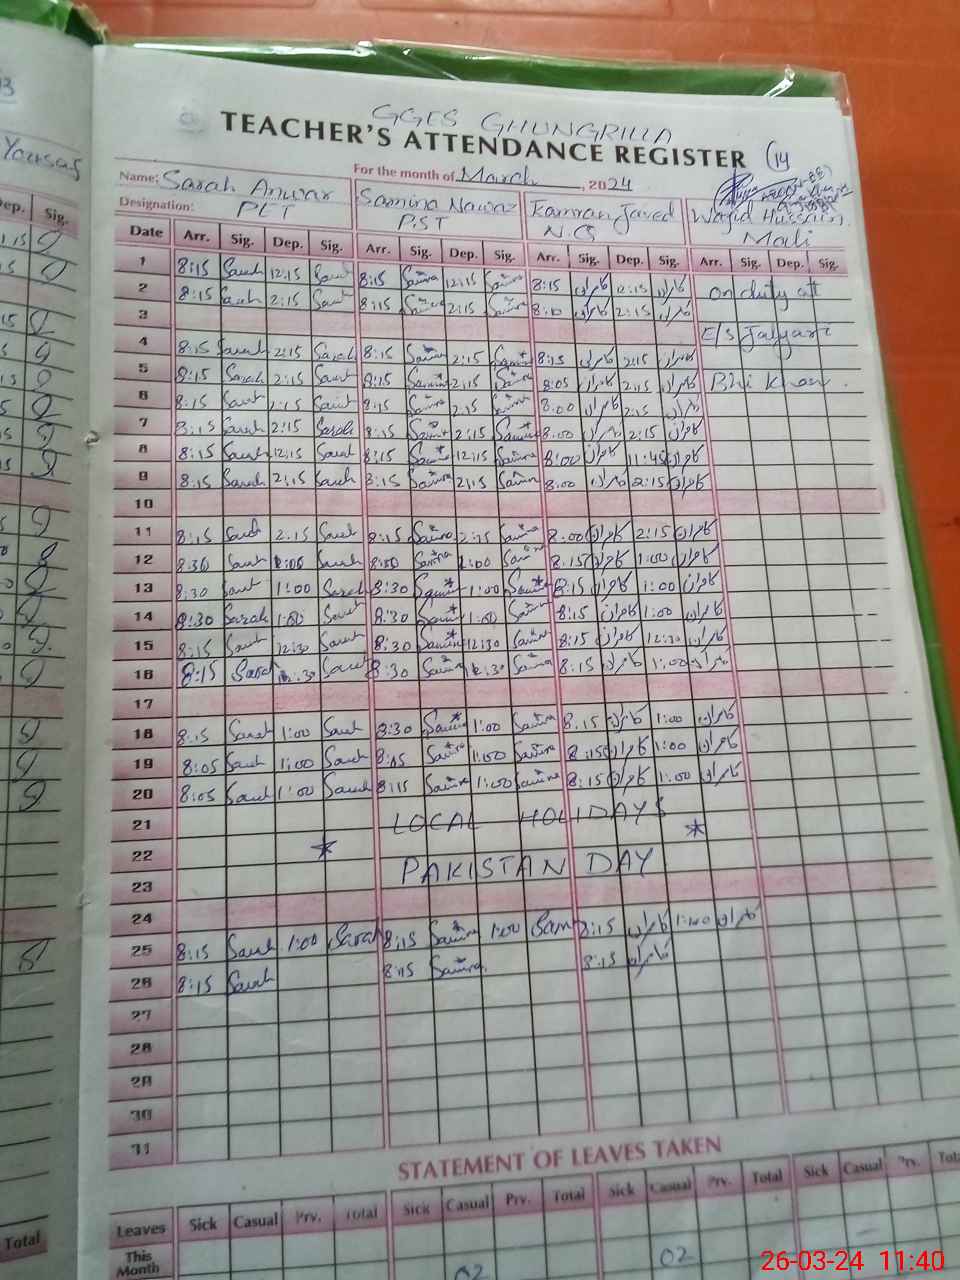 GGES GHUNGRILLA
TEACHER'S ATTENDANCE REGISTER 14
Name: Sarah Anwar For the month of March, 2024
Samina Nawaz Kamran Javed Wajid Hussain
Designation: PET PST N.Q Mali
Date Arr. Sig. Dep. Sig. Arr. Sig. Dep. Sig. Arr. Sig. Dep. Sig. Arr. Sig. Dep. Sig.
1 8:15 Sarah 12:15 Sarah 8:15 Samina 12:15 Samina 8:15 کامران 12:15 کامران
2 8:15 Sarah 2:15 Sarah 8:15 Samina 2:15 Samina 8:10 کامران 2:15 کامران on duty at
3 E/S
4 8:15 Sarah 2:15 Sarah 8:15 Samina 2:15 Samina 8:15 کامران 2:15 کامران
5 8:15 Sarah 2:15 Sarah 8:15 Samina 2:15 Samina 8:05 کامران 2:15 کامران
6 8:15 Sarah 2:15 Sarah 8:15 Samina 2:15 Samina 8:00 کامران 2:15 کامران
7 8:15 Sarah 2:15 Sarah 8:15 Samina 2:15 Samina 8:00 کامران 2:15 کامران
8 8:15 Sarah 12:15 Sarah 8:15 Samina 12:15 Samina 8:00 کامران 11:45 کامران
9 8:15 Sarah 2:15 Sarah 8:15 Samina 2:15 Samina 8:00 کامران 2:15 کامران
10
11 8:15 Sarah 2:15 Sarah 8:15 Samina 2:15 Samina 8:00 کامران 2:15 کامران
12 8:30 Sarah 1:00 Sarah 8:30 Samina 1:00 Samina 8:15 کامران 1:00 کامران
13 8:30 Sarah 1:00 Sarah 8:30 Samina 1:00 Samina 8:15 کامران 1:00 کامران
14 8:30 Sarah 1:00 Sarah 8:30 Samina 1:00 Samina 8:15 کامران 1:00 کامران
15 8:15 Sarah 12:30 Sarah 8:30 Samina 12:30 Samina 8:15 کامران 12:30 کامران
16 8:15 Sarah 12:30 Sarah 8:30 Samina 12:30 Samina 8:15 کامران 1:00 کامران
17
18 8:15 Sarah 1:00 Sarah 8:30 Samina 1:00 Samina 8:15 کامران 1:00 کامران
19 8:05 Sarah 1:00 Sarah 8:15 Samina 1:00 Samina 8:15 کامران 1:00 کامران
20 8:05 Sarah 1:00 Sarah 8:15 Samina 1:00 Samina 8:15 کامران 1:00 کامران
21 LOCAL HOLIDAYS
22 PAKISTAN DAY
23
24
25 8:15 Sarah 1:00 Sarah 8:15 Samina 1:00 Sam 8:15 کامران 1:00 کامران
26 8:15 Sarah 8:15 Samina 8:15 کامران
27
28
29
30
31
STATEMENT OF LEAVES TAKEN
Leaves Sick Casual Prv. Total Sick Casual Prv. Total Sick Casual Prv. Total Sick Casual Prv.
This Month 02 02
Dep. Sig.
Total
26-03-24 11:40